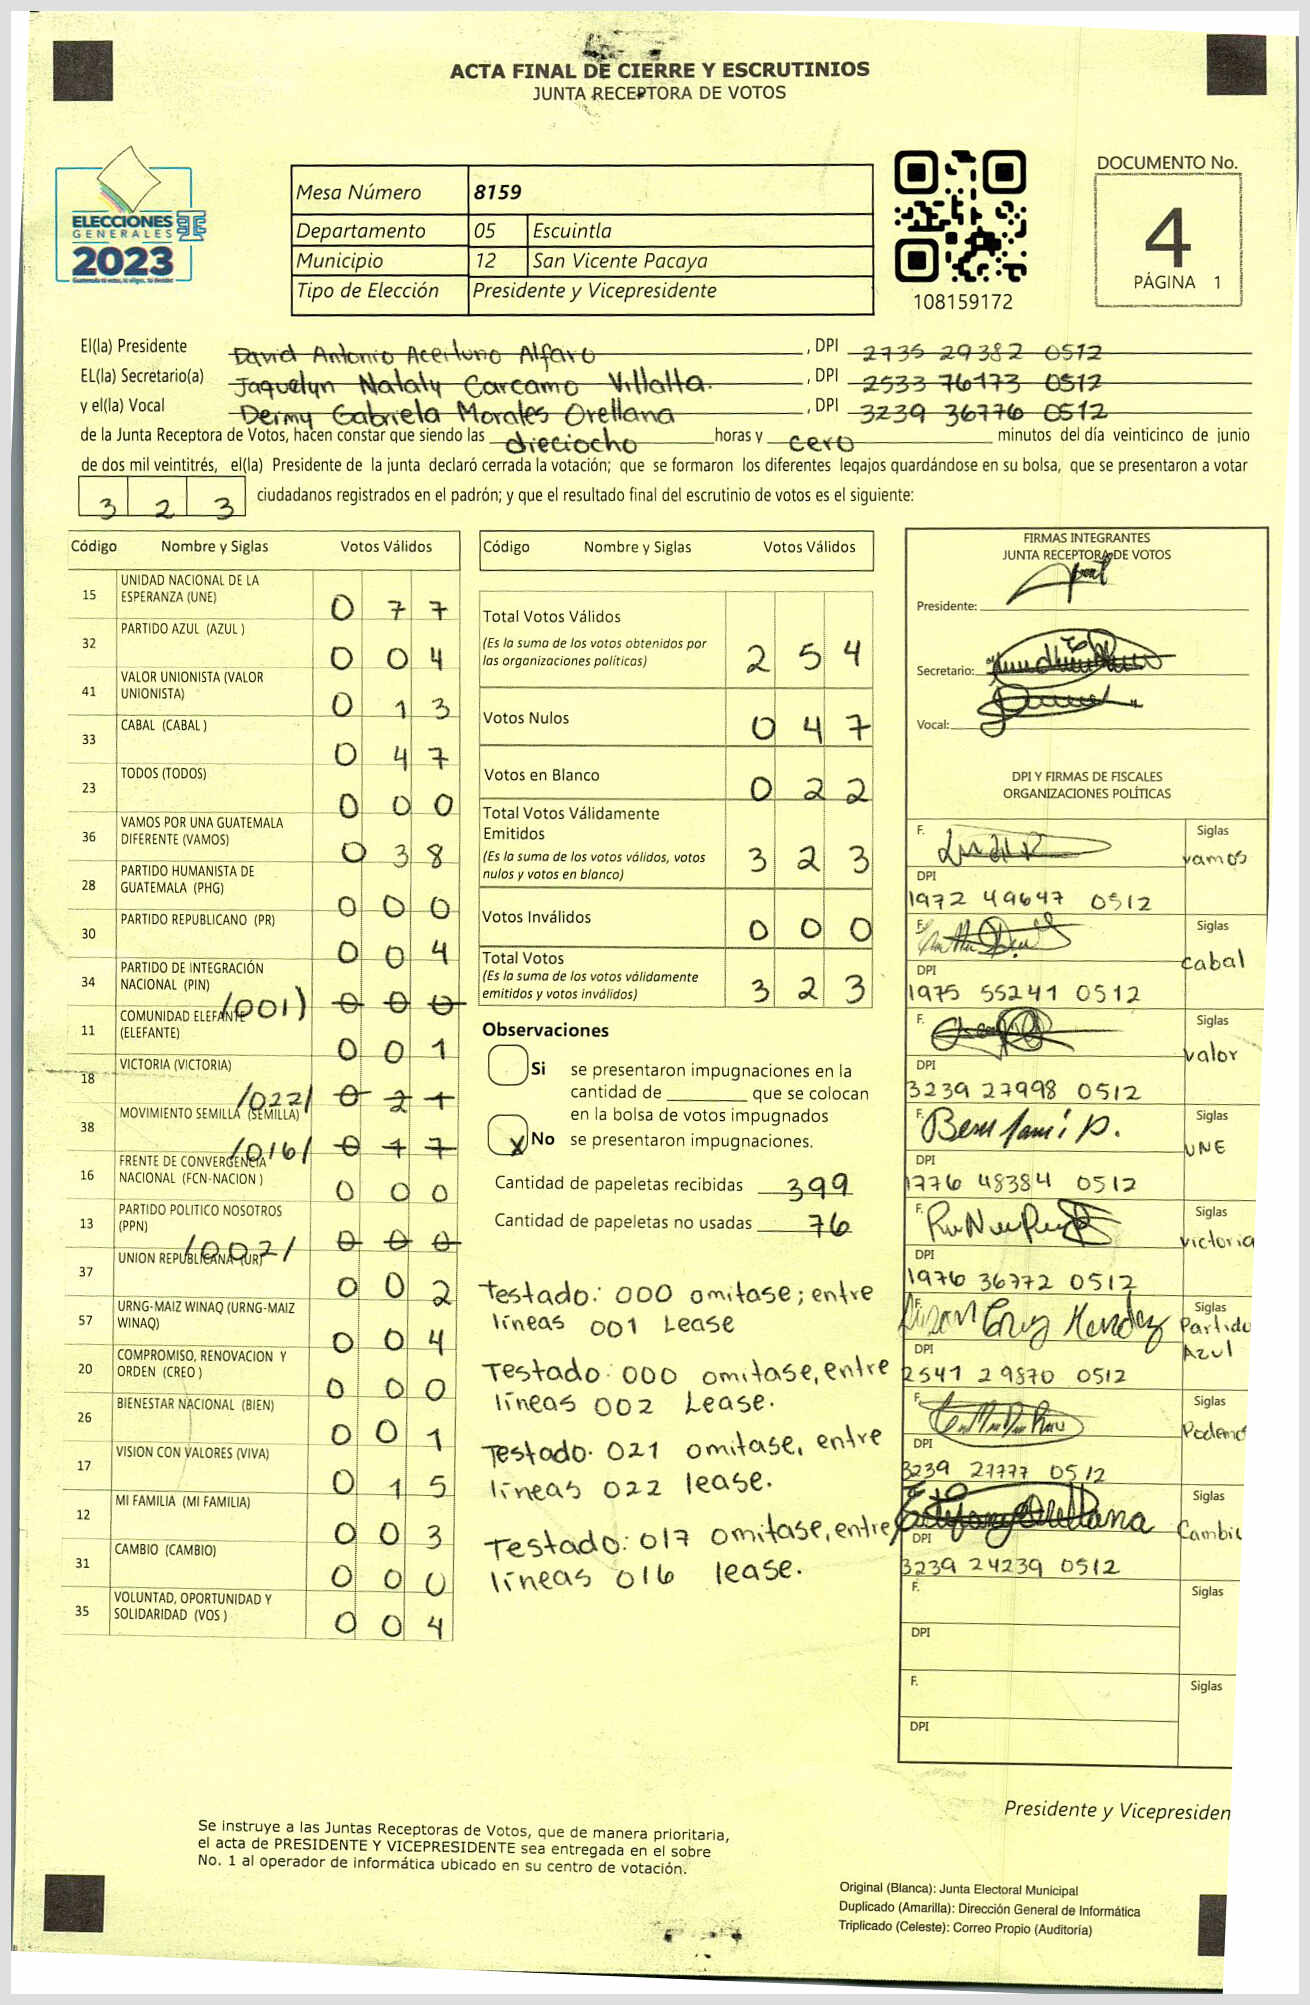 ACTA FINAL DE CIERRE Y ESCRUTINIOS
JUNTA RECEPTORA DE VOTOS
ELECCIONES
GENERALES
2023
Mesa Número 8159
Departamento 05 Escuintla
Municipio 12 San Vicente Pacaya
Tipo de Elección Presidente y Vicepresidente
108159172
DOCUMENTO No.
4
PÁGINA 1
El(la) Presidente David Antonio Aceituno Alfaro , DPI 2735 29382 0512
EL(la) Secretario(a) Jaquelyn Nataly Carcamo Villalta. , DPI 2533 76173 0512
y el(la) Vocal Deimy Gabriela Morales Orellana , DPI 3239 36776 0512
de la Junta Receptora de Votos, hacen constar que siendo las dieciocho horas y cero minutos del día veinticinco de junio
de dos mil veintitrés, el(la) Presidente de la junta declaró cerrada la votación; que se formaron los diferentes legajos guardándose en su bolsa, que se presentaron a votar
3 2 3 ciudadanos registrados en el padrón; y que el resultado final del escrutinio de votos es el siguiente:
Código Nombre y Siglas Votos Válidos
15 UNIDAD NACIONAL DE LA
ESPERANZA (UNE) 0 7 7
32 PARTIDO AZUL (AZUL ) 0 0 4
41 VALOR UNIONISTA (VALOR
UNIONISTA) 0 1 3
33 CABAL (CABAL ) 0 4 7
23 TODOS (TODOS) 0 0 0
36 VAMOS POR UNA GUATEMALA
DIFERENTE (VAMOS) 0 3 8
28 PARTIDO HUMANISTA DE
GUATEMALA (PHG) 0 0 0
30 PARTIDO REPUBLICANO (PR) 0 0 4
34 PARTIDO DE INTEGRACIÓN
NACIONAL (PIN) /001) 0 0 0
11 COMUNIDAD ELEFANTE
(ELEFANTE) 0 0 1
18 VICTORIA (VICTORIA) /022/ 0 2 1
38 MOVIMIENTO SEMILLA (SEMILLA) /016/ 0 1 7
16 FRENTE DE CONVERGENCIA
NACIONAL (FCN-NACION ) 0 0 0
13 PARTIDO POLITICO NOSOTROS
(PPN) /002/ 0 0 0
37 UNION REPUBLICANA (UR) 0 0 2
57 URNG-MAIZ WINAQ (URNG-MAIZ
WINAQ) 0 0 4
20 COMPROMISO, RENOVACION Y
ORDEN (CREO ) 0 0 0
26 BIENESTAR NACIONAL (BIEN) 0 0 1
17 VISION CON VALORES (VIVA) 0 1 5
12 MI FAMILIA (MI FAMILIA) 0 0 3
31 CAMBIO (CAMBIO) 0 0 0
35 VOLUNTAD, OPORTUNIDAD Y
SOLIDARIDAD (VOS ) 0 0 4
Código Nombre y Siglas Votos Válidos
Total Votos Válidos
(Es la suma de los votos obtenidos por
las organizaciones políticas) 2 5 4
Votos Nulos 0 4 7
Votos en Blanco 0 2 2
Total Votos Válidamente
Emitidos
(Es la suma de los votos válidos, votos
nulos y votos en blanco) 3 2 3
Votos Inválidos 0 0 0
Total Votos
(Es la suma de los votos válidamente
emitidos y votos inválidos) 3 2 3
Observaciones
Si se presentaron impugnaciones en la
cantidad de ________ que se colocan
en la bolsa de votos impugnados
X No se presentaron impugnaciones.
Cantidad de papeletas recibidas 399
Cantidad de papeletas no usadas 76
Testado: 000 omitase; entre
líneas 001 Lease
Testado: 000 omitase, entre
líneas 002 Lease.
Testado. 021 omitase, entre
líneas 022 lease.
Testado: 017 omitase, entre
líneas 016 lease.
FIRMAS INTEGRANTES
JUNTA RECEPTORA DE VOTOS
Presidente:
Secretario:
Vocal:
DPI Y FIRMAS DE FISCALES
ORGANIZACIONES POLÍTICAS
F. Siglas
vamos
DPI
1972 49647 0512
F. Siglas
cabal
DPI
1975 55241 0512
F. Siglas
valor
DPI
3239 27998 0512
F. Benjamin P. Siglas
UNE
DPI
1776 48384 0512
F. Siglas
victoria
DPI
1976 36772 0512
F. Cruz Mendez Siglas
Partido
Azul
DPI
2541 29870 0512
F. Siglas
Podemos
DPI
3239 27777 0512
Estefany Orellana Siglas
Cambio
DPI
3239 24239 0512
F. Siglas
DPI
F. Siglas
DPI
Presidente y Vicepresiden
Se instruye a las Juntas Receptoras de Votos, que de manera prioritaria,
el acta de PRESIDENTE Y VICEPRESIDENTE sea entregada en el sobre
No. 1 al operador de informática ubicado en su centro de votación.
Original (Blanca): Junta Electoral Municipal
Duplicado (Amarilla): Dirección General de Informática
Triplicado (Celeste): Correo Propio (Auditoría)